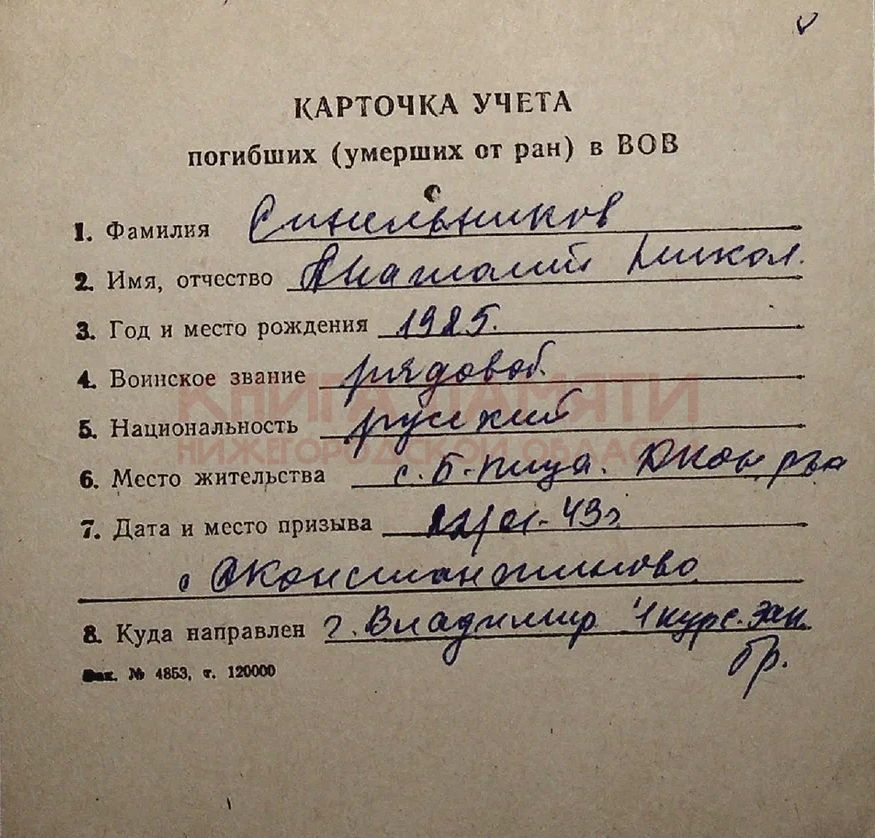 КАРТОЧКА УЧЕТА
погибших (умерших от ран) в ВОВ
1. Фамилия Синельников
2. Имя, отчество Анатолий Никол.
3. Год и место рождения 1925.
4. Воинское звание рядовой.
КНИГА ПАМЯТИ
5. Национальность русский
НИЖЕГОРОДСКОЙ ОБЛАСТИ
6. Место жительства с. Б-пица. Дкон р-на
7. Дата и место призыва /01-43г
с Дконстантиново
8. Куда направлен г. Владимир 1 курс. зап.
бр.
Зак. № 4853, т. 120000